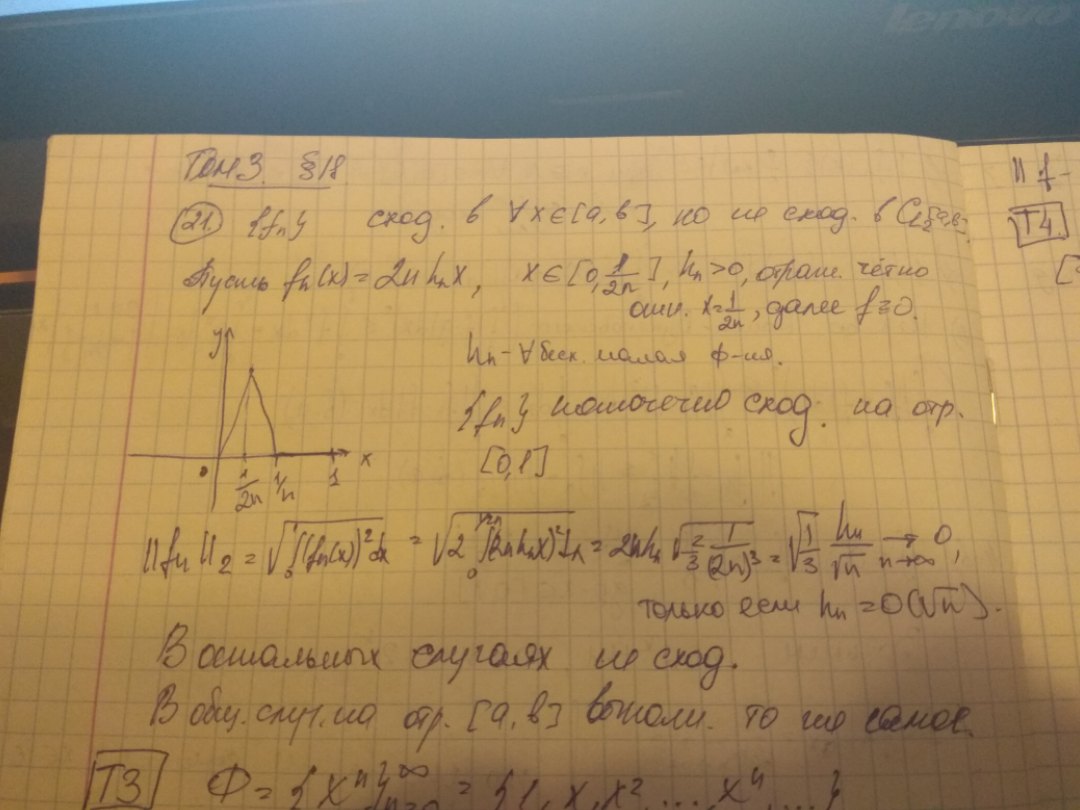 lenovo
Том 3. §18
(21.) {fₙ} сход. в ∀x∈[a,b], но не сход. в CL₂[a,b].
Пусть fₙ(x)=2n hₙ x, x∈[0, 1/2n], hₙ>0, отраж. чётно
отн. x=1/2n, далее f≡0.
hₙ - ∀ беск. малая ф-ия.
y
{fₙ} поточечно сход. на отр.
[0,1]
0 1/2n 1/n 1 x
||fₙ||₂ = √(∫₀¹(fₙ(x))²dx) = √(2∫₀^(1/2n)(2n hₙ x)²dx) = 2n hₙ √(2/3 · 1/(2n)³) = √(1/3) hₙ/√n → 0, n→∞
только если hₙ = o(√n).
В остальных случаях не сход.
В общ. случ. на отр. [a,b] выполн. то же самое.
T3 Ф = {xⁿ}ₙ₌₀^∞ = {1, x, x², ..., xⁿ, ...}
|| f-
T4.
[